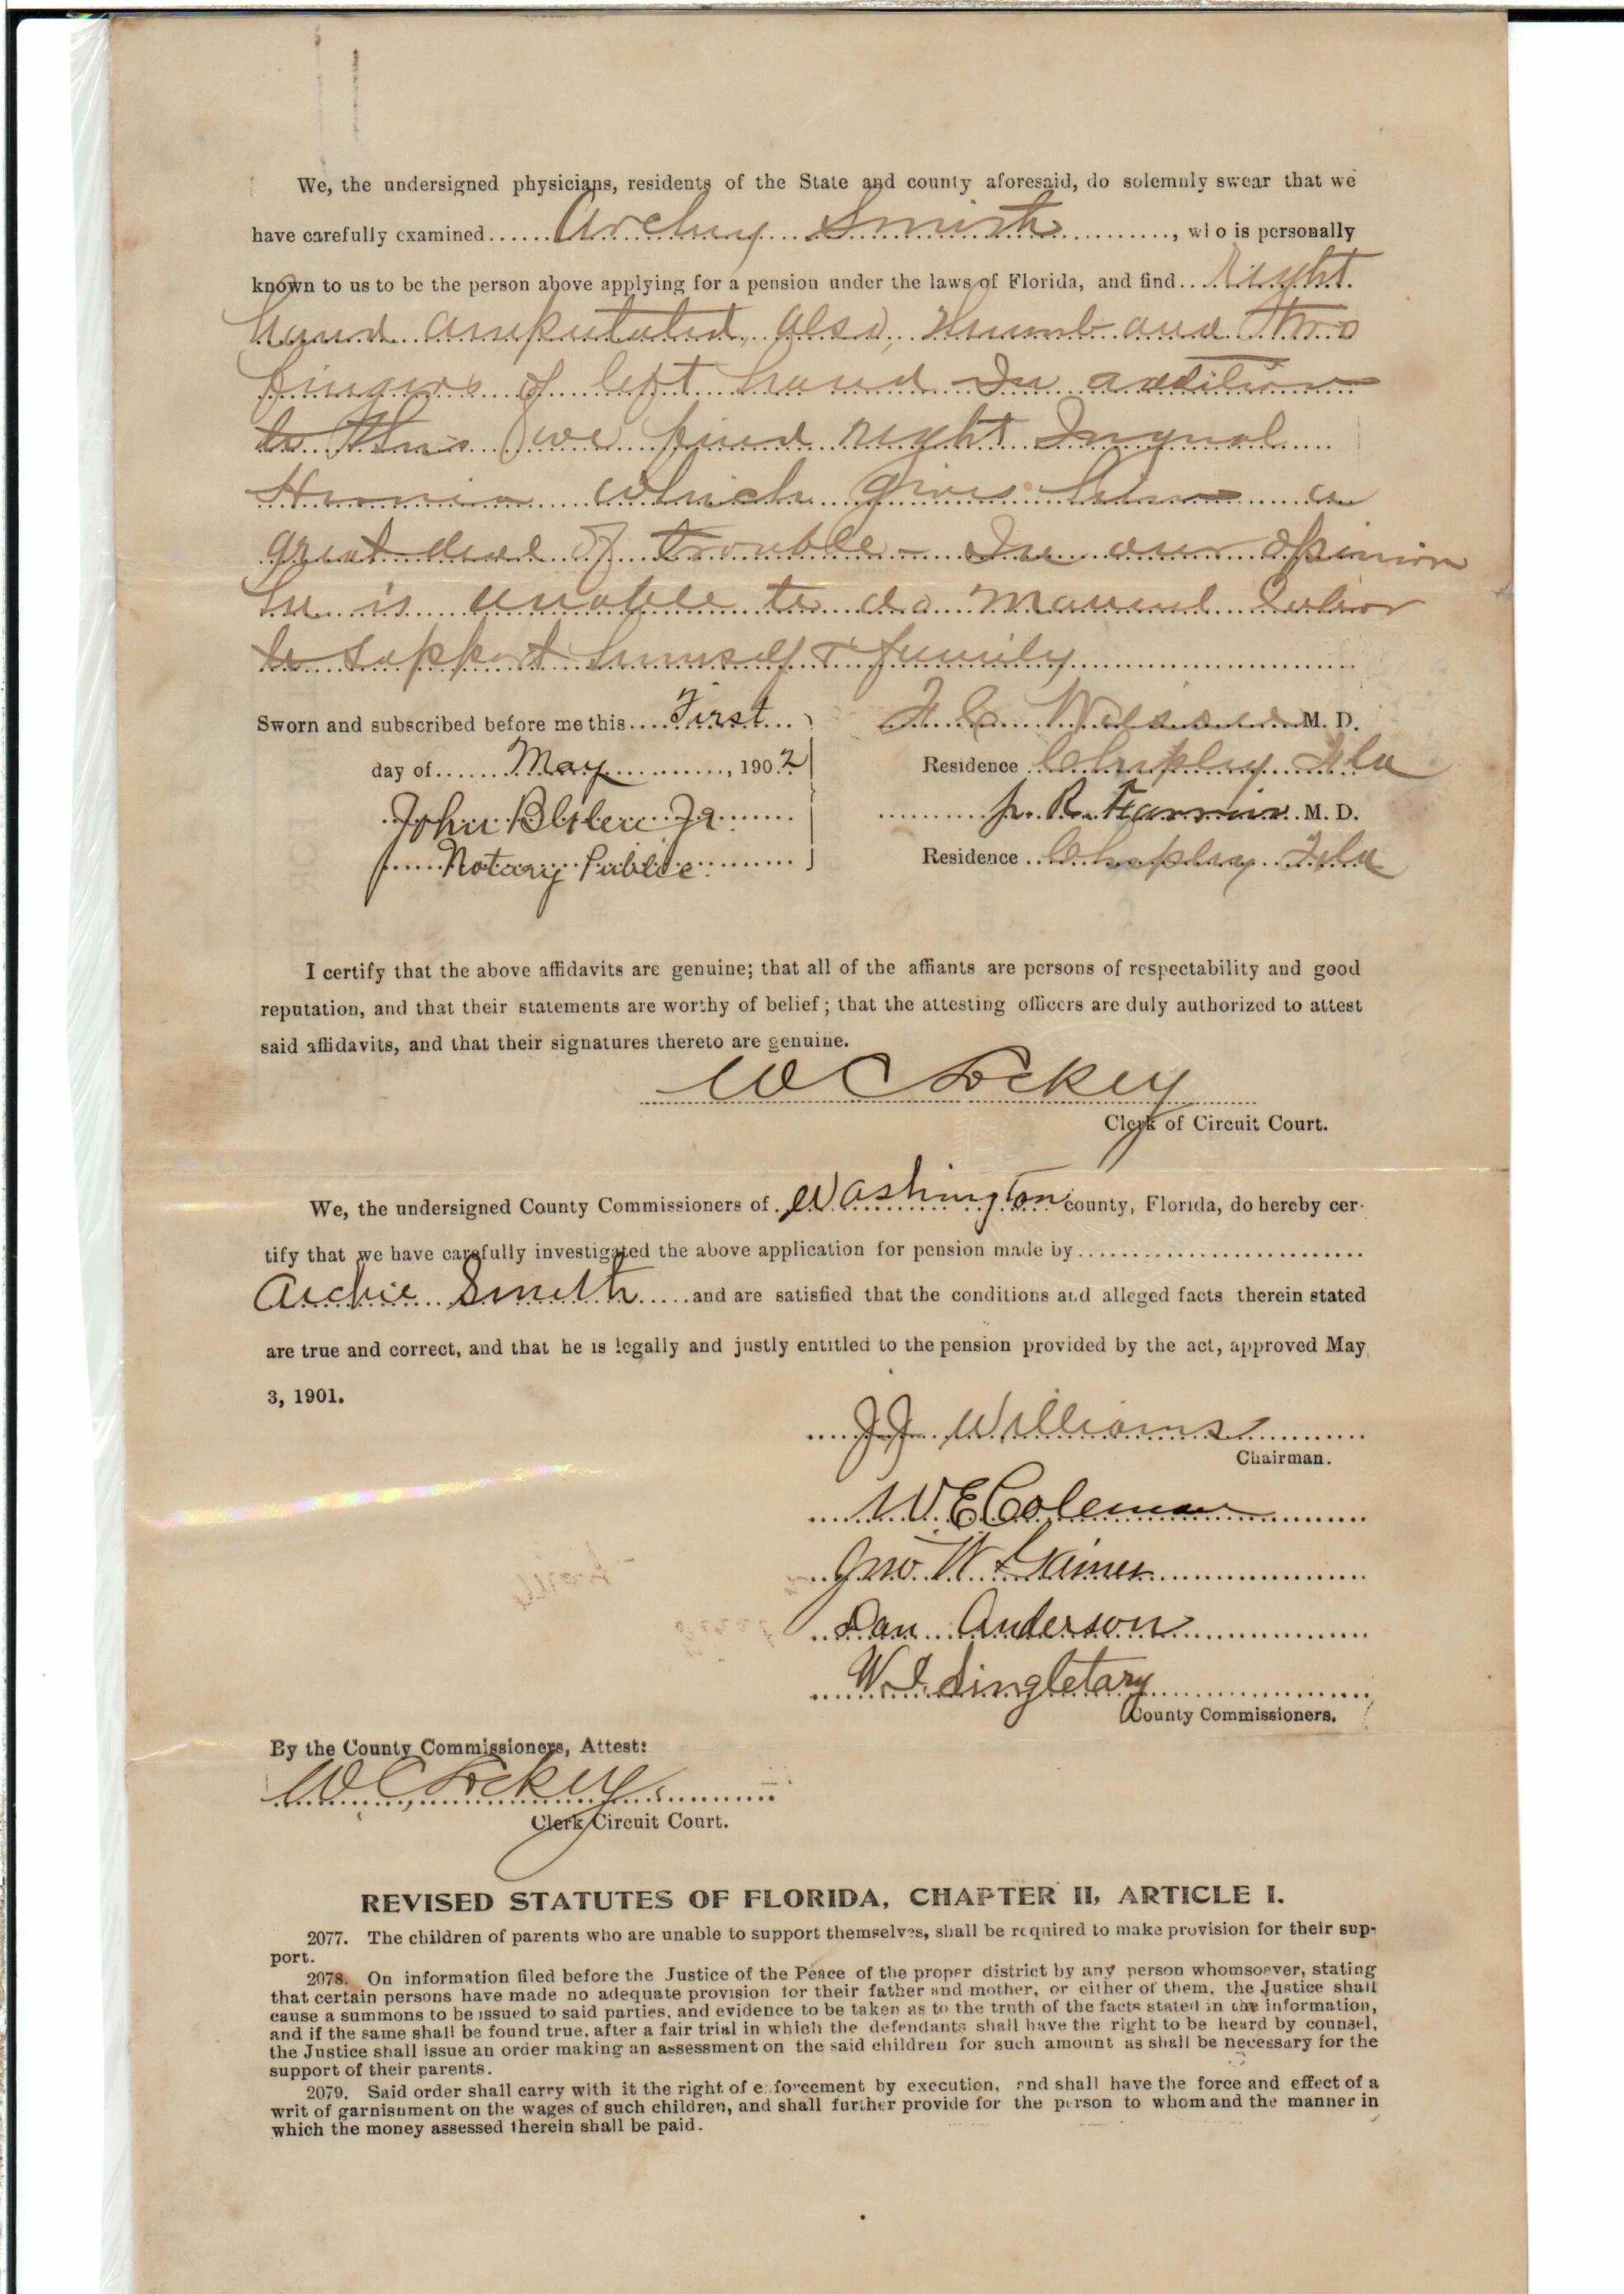 We, the undersigned physicians, residents of the State and county aforesaid, do solemnly swear that we
have carefully examined Archey Smith, who is personally
known to us to be the person above applying for a pension under the laws of Florida, and find Right
hand amputated, also, thumb and two
fingers of left hand In addition
to this we find right Ingunal
Hernia which gives him a
great deal of trouble - In our opinion
he is unable to do manual labor
to support himself & family
Sworn and subscribed before me this First
day of May, 1902
John
Notary Public.
M. D.
Residence Chipley Fla
R. M. D.
Residence Chipley Fla
I certify that the above affidavits are genuine; that all of the affiants are persons of respectability and good
reputation, and that their statements are worthy of belief; that the attesting officers are duly authorized to attest
said affidavits, and that their signatures thereto are genuine.
W C Lockey
Clerk of Circuit Court.
We, the undersigned County Commissioners of Washington county, Florida, do hereby cer-
tify that we have carefully investigated the above application for pension made by
Archie Smith and are satisfied that the conditions and alleged facts therein stated
are true and correct, and that he is legally and justly entitled to the pension provided by the act, approved May
3, 1901.
JJ Williams
Chairman.
W. E Coleman
Jno. W.
Dan Anderson
W. I. Singletary
County Commissioners.
By the County Commissioners, Attest:
W C Lockey
Clerk Circuit Court.
REVISED STATUTES OF FLORIDA, CHAPTER II, ARTICLE I.
2077. The children of parents who are unable to support themselves, shall be required to make provision for their sup-
port.
2078. On information filed before the Justice of the Peace of the proper district by any person whomsoever, stating
that certain persons have made no adequate provision for their father and mother, or either of them, the Justice shall
cause a summons to be issued to said parties, and evidence to be taken as to the truth of the facts stated in the information,
and if the same shall be found true, after a fair trial in which the defendants shall have the right to be heard by counsel,
the Justice shall issue an order making an assessment on the said children for such amount as shall be necessary for the
support of their parents.
2079. Said order shall carry with it the right of enforcement by execution, and shall have the force and effect of a
writ of garnisument on the wages of such children, and shall further provide for the person to whom and the manner in
which the money assessed therein shall be paid.